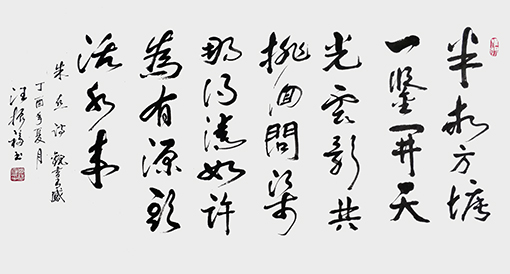 半畝方塘
一鑒開天
光雲影共
徘徊問渠
那得清如許
為有源頭
活水來
朱熹詩 觀書有感
丁酉年夏月
汪 書